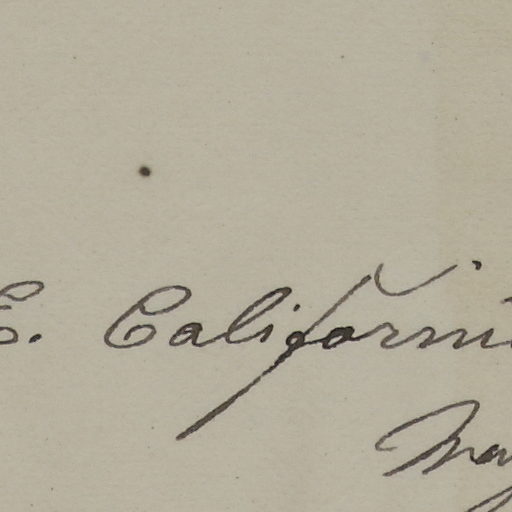 E. Californi
May